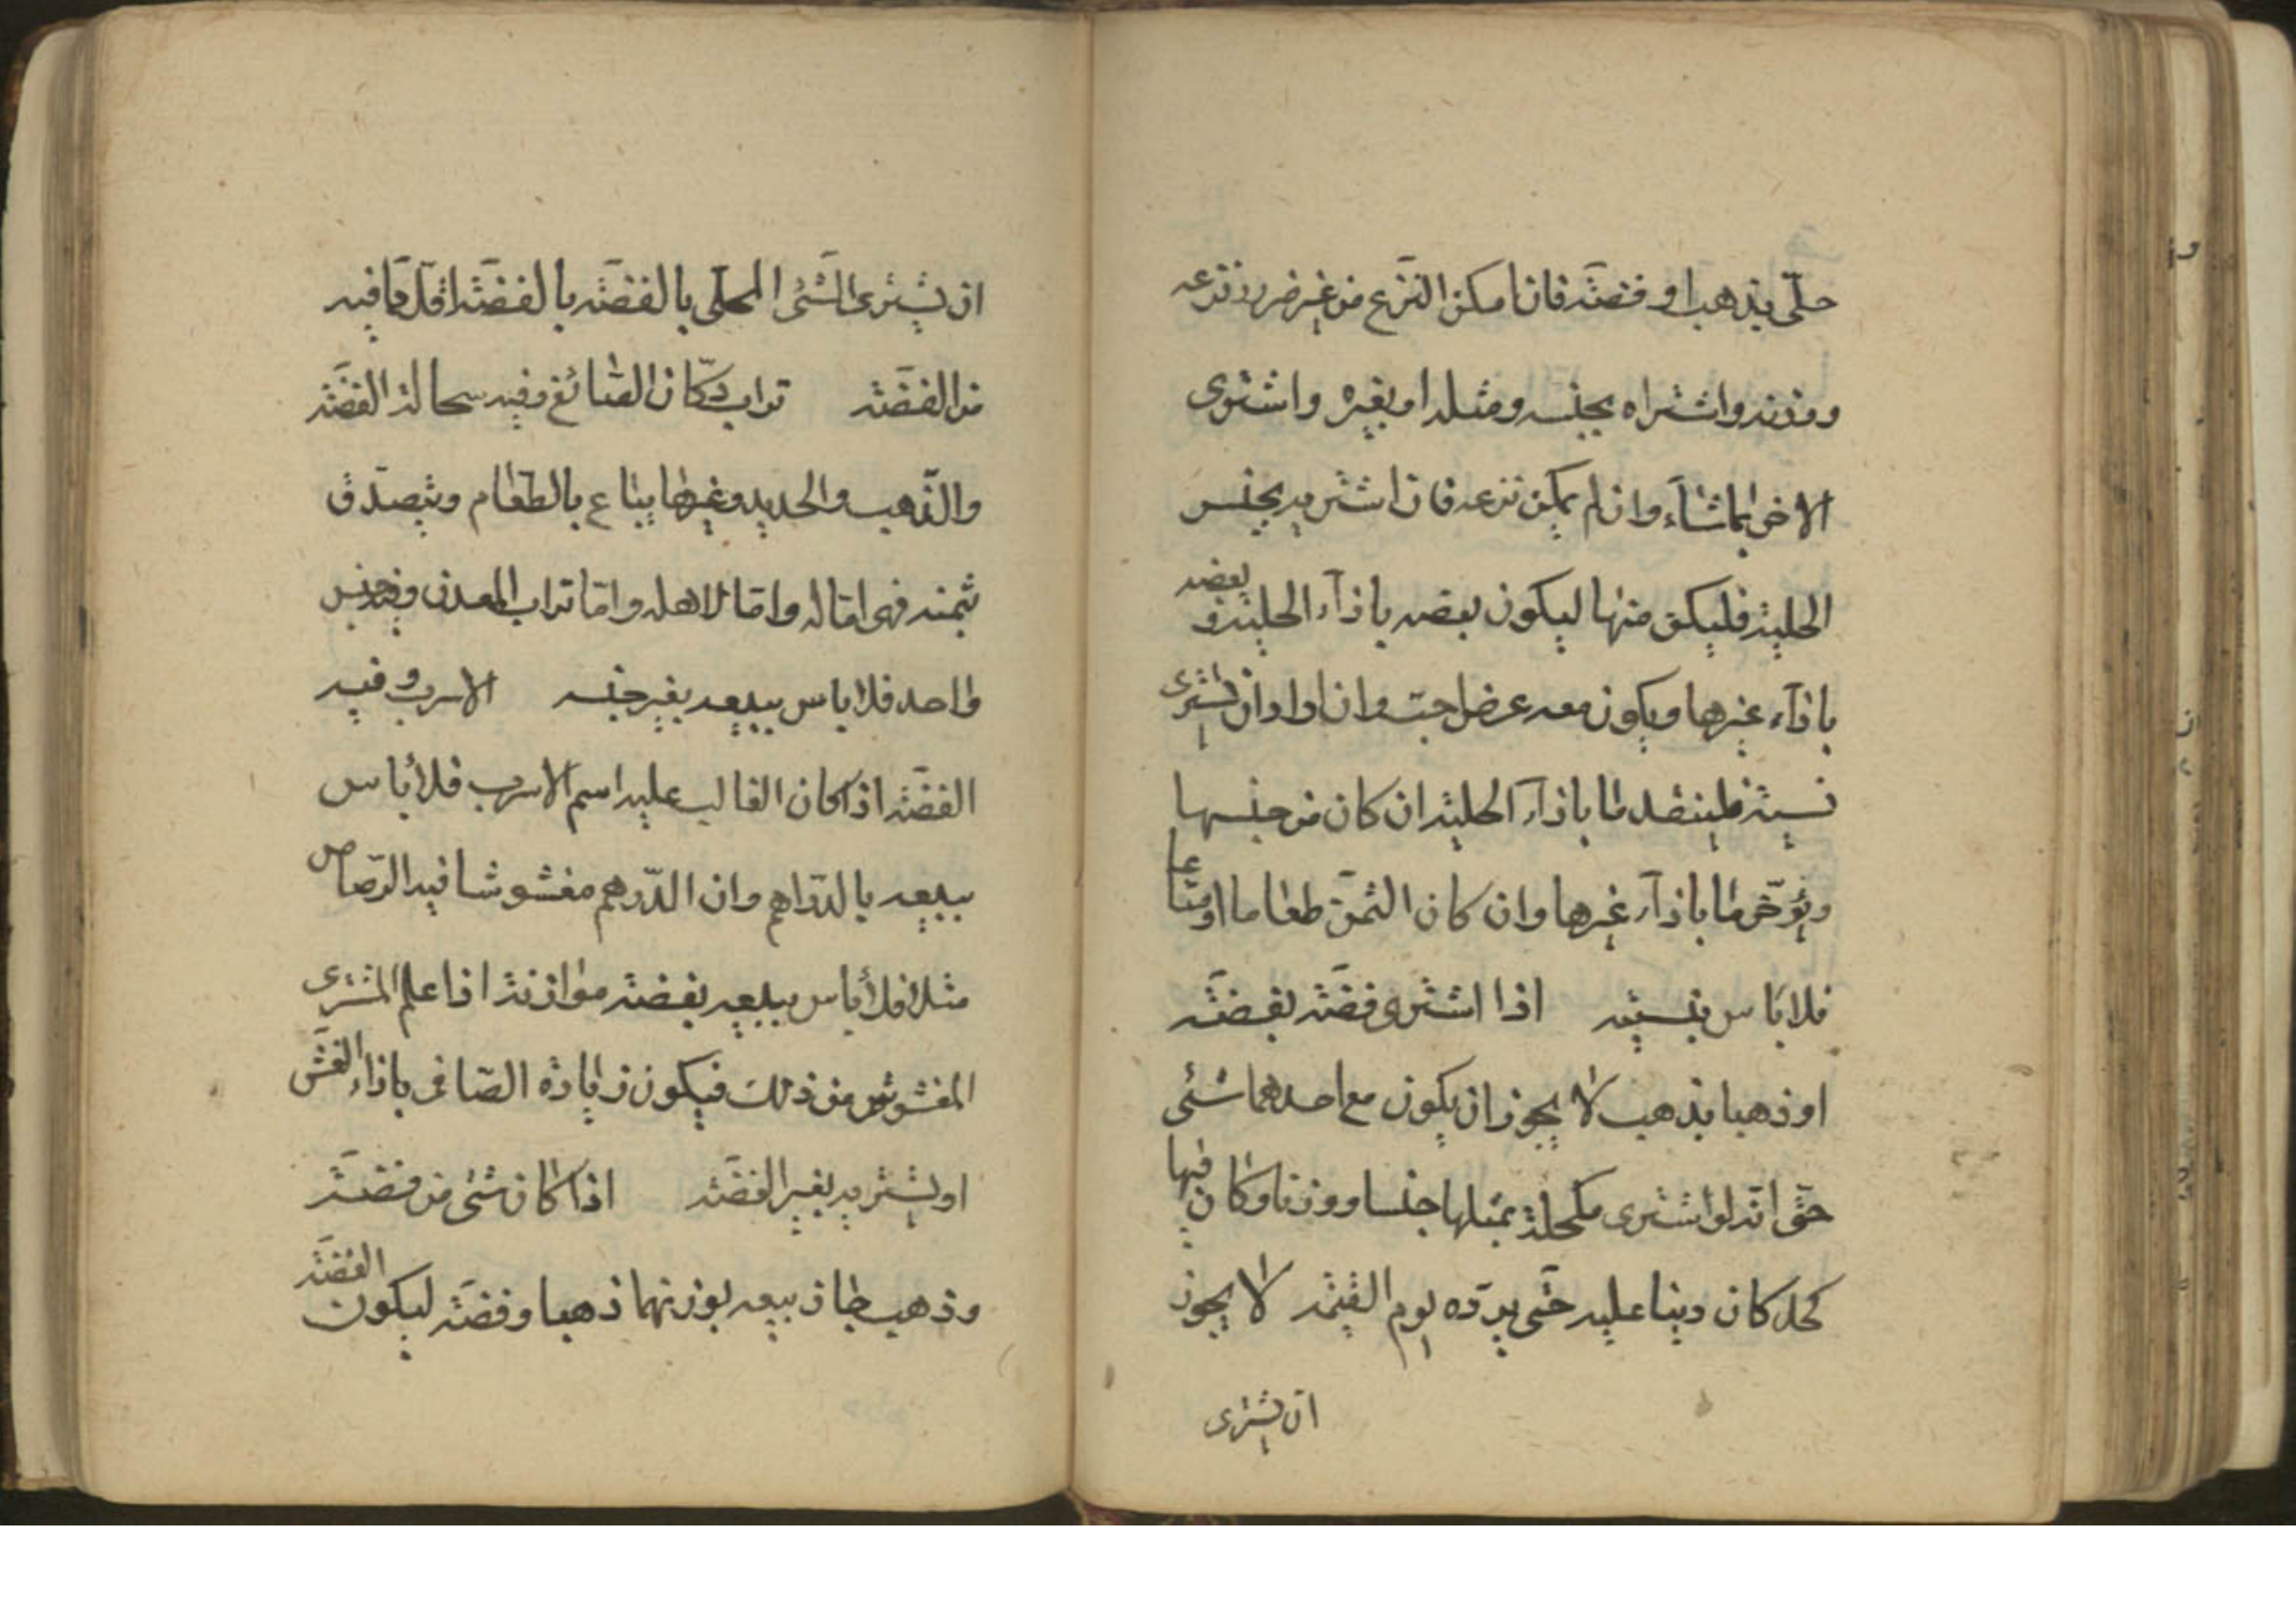 حلّى بذهب او فضّة فان امكن النزع من غير ضرر نزعه
ووزنه واشتراه بجنسه ومثله او بغيره واشترى
الاخر بما شاء وان لم يمكن نزعه فان اشتريه بجنس
الحلية فليكن منها ليكون بعضه باذآء الحلية و بعضه
باذآء غيرها ويكون معه عرض اجت وان اراد ان يشترى
نسيئة فلينقد ما باذآء الحلية ان كان من جنسها
ويؤخّر ما باذآء غيرها وان كان الثمن طعاما او متاعا
فلا باس بنسيئه اذا اشترى فضّة بفضّة
او ذهبا بذهب لا يجوز ان يكون مع احدهما شئى
حتّى انّه لو اشترى مكحلة بمثلها جنسا ووزنا وكان فيها
كحل كان دينا عليه حتّى يردّه يوم القيٰمة لا يجوز
ان يشترى
ان يشترى الشّئى المحلّى بالفضّة بالفضّة اقلّ ممّا فيه
من الفضّة تراب دكّان الصّائغ وفيه سحالة الفضّة
والذّهب والحديد وغيرها يباع بالطّعام ويتصدّق
بثمنه فهى امّا له وامّا لاهله وامّا تراب المعدن وفيه جنس
واحد فلا باس ببيعه بغير جنسه الاسرب وفيه
الفضّة اذا كان الغالب عليه اسم الاسرب فلا باس
ببيعه بالدّراهم وان الدّرهم مغشوشا فيه الرّصاص
مثلا فلا باس ببيعه بفضّة موازنة اذا علم المشترى
المغشوش من ذلك فيكون زيادة الصّافى باذاء الغشّ
او يشتريه بغير الفضّة اذا كان شئى من فضّة
وذهب جاز بيعه بوزنهما ذهبا وفضّة ليكون الفضّة